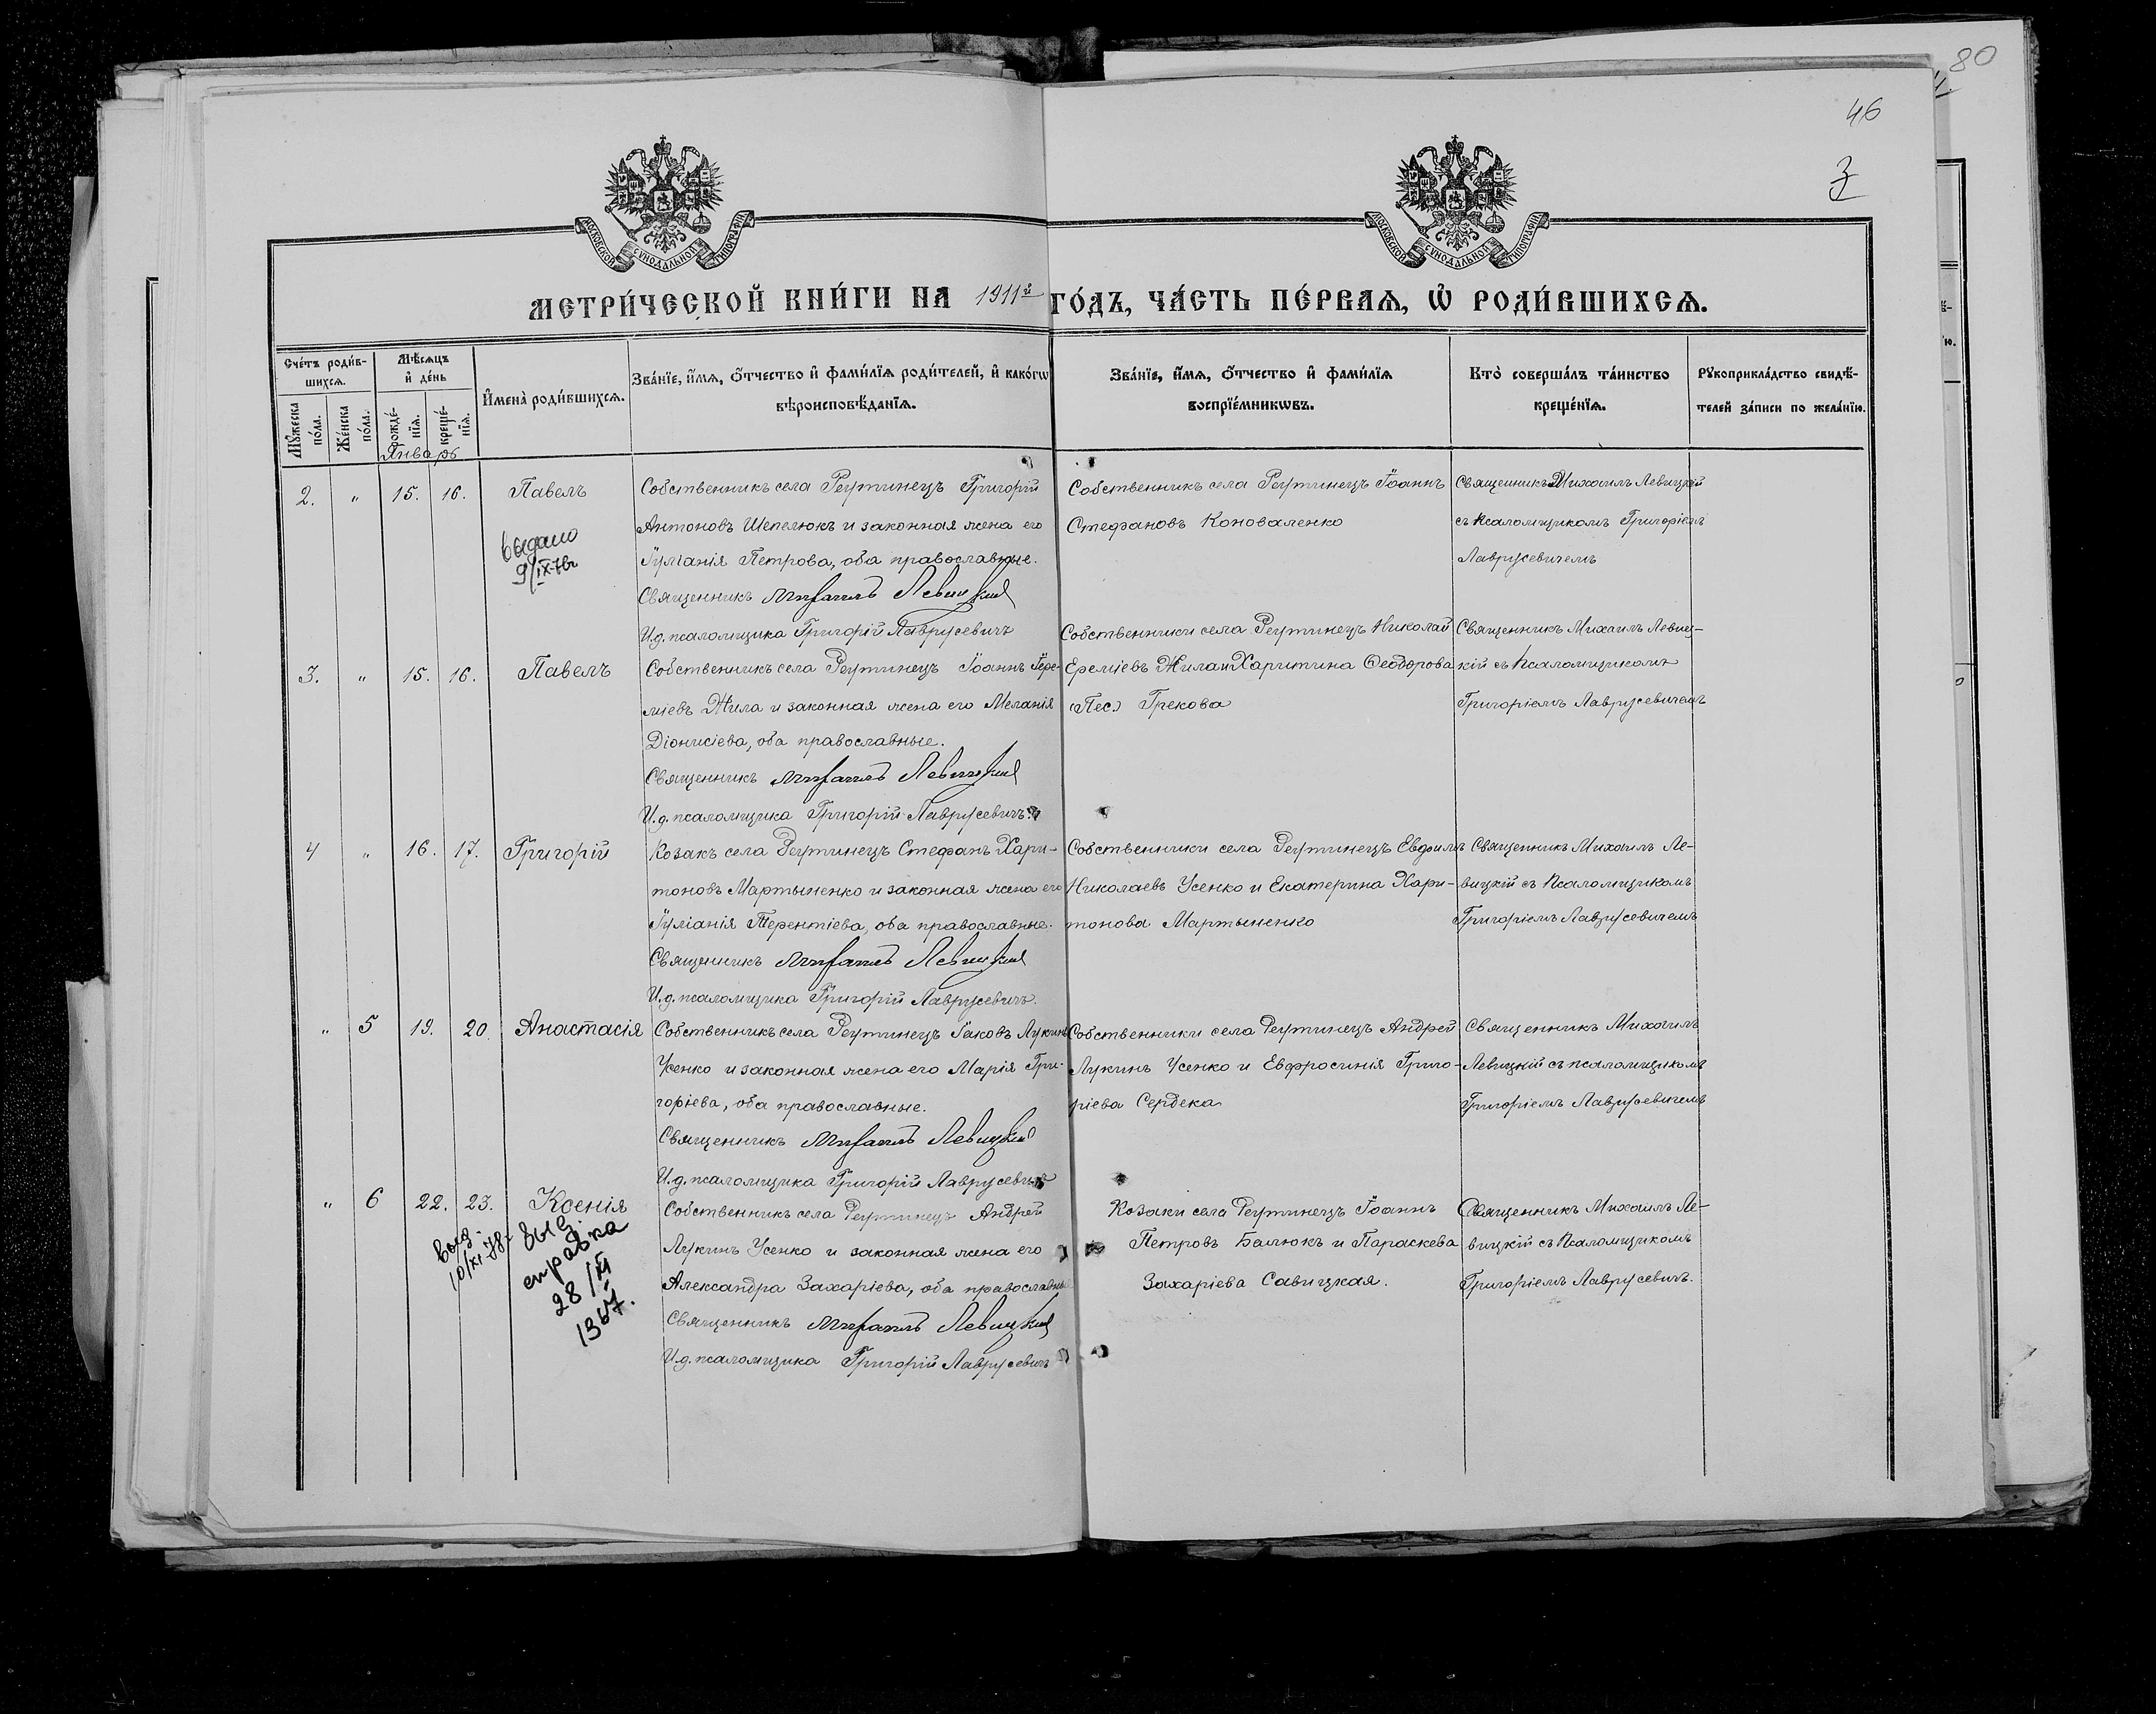 80
46
3
МОСКОВСКОЙ СѴНОДАЛЬНОЙ ТИПОГРАФІИ
МОСКОВСКОЙ СѴНОДАЛЬНОЙ ТИПОГРАФІИ
МЕТРИ́ЧЕСКОЙ КНИ́ГИ НА 1911й ГО́ДЪ, ЧА́СТЬ ПЕ́РВАѦ, Ѡ҆ РОДИ́ВШИХСѦ.
Сче́тъ роди́в-
шихсѧ.
Мꙋ́жеска по́ла.
Же́нска по́ла.
Мѣ́сѧцъ
и҆ де́нь
рожде́-
нїѧ.
креще́-
нїѧ.
И҆мена̀ роди́вшихсѧ.
Зва́нїе, и҆́мѧ, ѻ҆́тчество и҆ фами́лїѧ роди́телей, и҆ како́гѡ
вѣроисповѣ́данїѧ.
Зва́нїе, и҆́мѧ, ѻ҆́тчество и҆ фами́лїѧ
воспрїе́мникѡвъ.
Кто̀ соверша́лъ та́инство
креще́нїѧ.
Рꙋкоприкла́дство свидѣ́-
телей за́писи по жела́нїю.
Январь
2. " 15. 16. Павелъ
выдано
9/IX-
Собственникъ села Реутинецъ Григорій
Антоновъ Шепелюкъ и законная жена его
Іуліанія Петрова, оба православные.
Священникъ Михаилъ Левицкій
И.д. псаломщика Григорій Лаврусевичъ
Собственникъ села Реутинецъ Іоаннъ
Стефановъ Коноваленко
Священникъ Михаилъ Левицкій
съ псаломщикомъ Григоріемъ
Лаврусевичемъ
3. " 15. 16. Павелъ
Собственникъ села Реутинецъ Іоаннъ Іере-
міевъ Жила и законная жена его Меланія
Діонисіева, оба православные.
Священникъ Михаилъ Левицкій
И.д. псаломщика Григорій Лаврусевичъ
Собственники села Реутинецъ Николай
Ереміевъ Жила и Харитина Ѳеодорова
(Пес) Грекова
Священникъ Михаилъ Левиц-
кій съ псаломщикомъ
Григоріемъ Лаврусевичемъ
4 " 16. 17. Григорій
Козакъ села Реутинецъ Стефанъ Хари-
тоновъ Мартыненко и законная жена его
Іуліанія Терентіева, оба православные.
Священникъ Михаилъ Левицкій
И.д. псаломщика Григорій Лаврусевичъ.
Собственники села Реутинецъ Евфимъ
Николаевъ Усенко и Екатерина Хари-
тонова Мартыненко
Священникъ Михаилъ Ле-
вицкій съ псаломщикомъ
Григоріемъ Лаврусевичемъ
" 5 19. 20. Анастасія
Собственникъ села Реутинецъ Іаковъ Лукинъ
Усенко и законная жена его Марія Гри-
горіева, оба православные.
Священникъ Михаилъ Левицкій
И.д. псаломщика Григорій Лаврусевичъ
Собственники села Реутинецъ Андрей
Лукинъ Усенко и Евфросинія Григо-
ріева Сердека
Священникъ Михаилъ
Левицкій съ псаломщикомъ
Григоріемъ Лаврусевичемъ
" 6 22. 23. Ксенія
выд.
10/XI-78
выд.
справка
28/XI
1967.
Собственникъ села Реутинецъ Андрей
Лукинъ Усенко и законная жена его
Александра Захаріева, оба православные
Священникъ Михаилъ Левицкій
И.д. псаломщика Григорій Лаврусевичъ
Козаки села Реутинецъ Іоаннъ
Петровъ Балюкъ и Параскева
Захаріева Савицкая.
Священникъ Михаилъ Ле-
вицкій съ псаломщикомъ
Григоріемъ Лаврусевичъ.